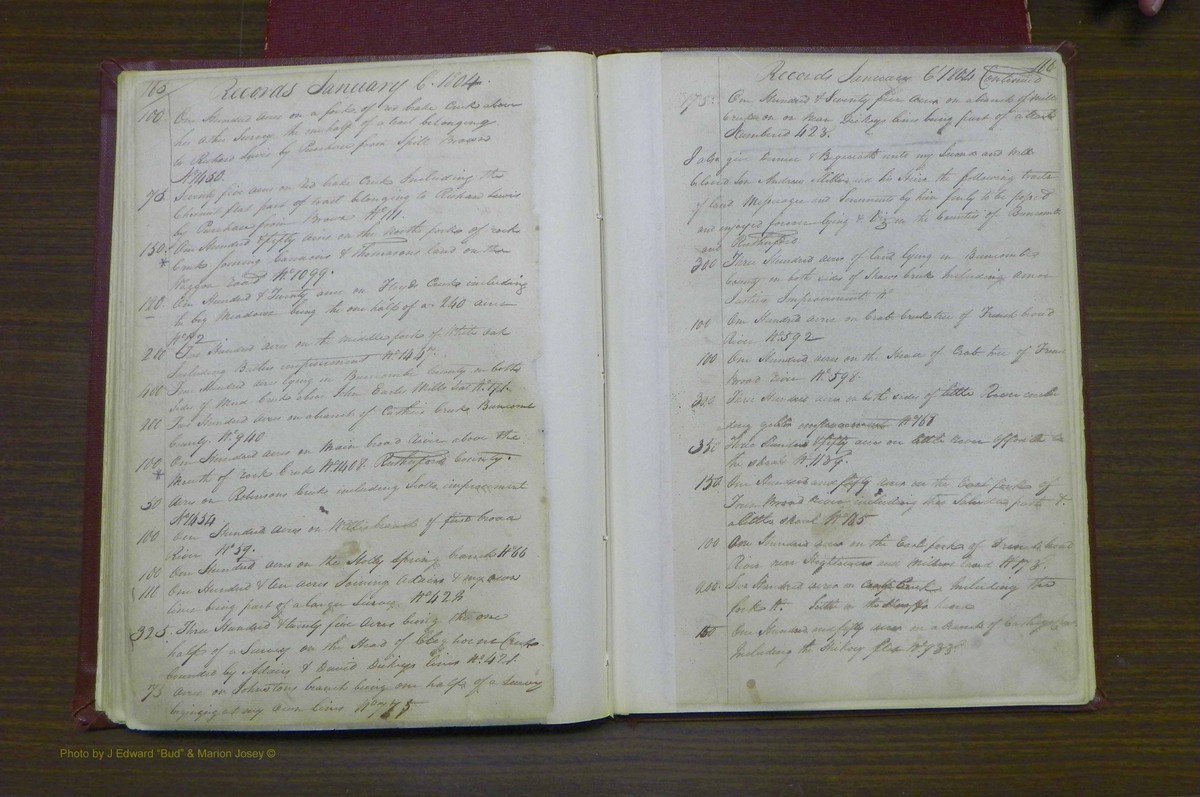 165
Records January 6. 1804.
100 One Hundred acres on a fork of red bake Creek above
his other Survey the one half of a tract belonging
to Richard Lewis by Purchase from Spill Brown
No. 1450.
75 Seventy five acres on Red bake Creek Including the
flat part of tract belonging to Richard Lewis
by Purchase from Brown No. 711.
150 One Hundred & fifty acres on the North fork of rock
Creek joining & Thomasons land on the
Waggon Road No. 1099.
120 One Hundred & Twenty acres on Floyds Creek including
the big Meadows being the one half of a 240 acres
No. 82
200 Two Hundred acres on the middle fork of White oak
Including Butlers improvement No. 1437.
400 Four Hundred acres lying in Buncombe County on both
sides of Mud Creek above John Earles Mills Seat No. 171.
200 Two Hundred acres on a branch of Cathies Creek Buncomb
County. No. 940
100 One Hundred acres on Main broad River above the
Mouth of rock Creek No. 1408. Rutherford County.
50 Acres on Robinsons Creek including improvement
No. 1454
100 One Hundred acres on branch of broad
River No. 59.
100 One Hundred acres on the Spring branch No. 66
110 One Hundred & ten acres Joining Adairs & my own
lines being part of a larger Survey No. 429
325. Three Hundred & twenty five acres being the one
half of a Survey on the Head of Cleghorns Creek
bounded by Adairs & David Dickeys lines No. 421.
75 acres on Johnstons branch being one half of a Survey
Joining my own lines No. 775
166
Records January 6th 1804 Continued
175. One Hundred & Seventy five acres on a branch of Mill
on or near Dickeys lines being part of a tract
Numbered 423.
I also give Devise & Bequeath unto my Second and well
beloved Son Andrew Miller and his Heirs the following tracts
of land Messuages and Tenements by him freely to be possd
and enjoyed forever lying & Viz in the Counties of Buncomb
and Rutherford
300 Three Hundred acres of land lying in Buncombe
County on both sides of Shaws Creek Including
Justice Improvement No.
100 One Hundred acres on Crab Creek tree of French broad
River No. 592
100 One Hundred acres on the Head of Crab tree of French
Broad River No. 596
300 Three Hundred acres on both sides of little River
improvement No. 768
350 Three Hundred & fifty acres on little river
the shoals No. 1139.
150 One Hundred and fifty acres on the East fork of
French Broad River including the path &
a little shoal No. 165
100 One Hundred acres on the East fork of French broad
River near Hightowers and land No. 178.
200. Two Hundred acres on Creek Including the
fork No.
150 One Hundred and fifty acres on a branch of
Including the Hickory flat No. 933
Photo by J Edward "Bud" & Marion Josey ©